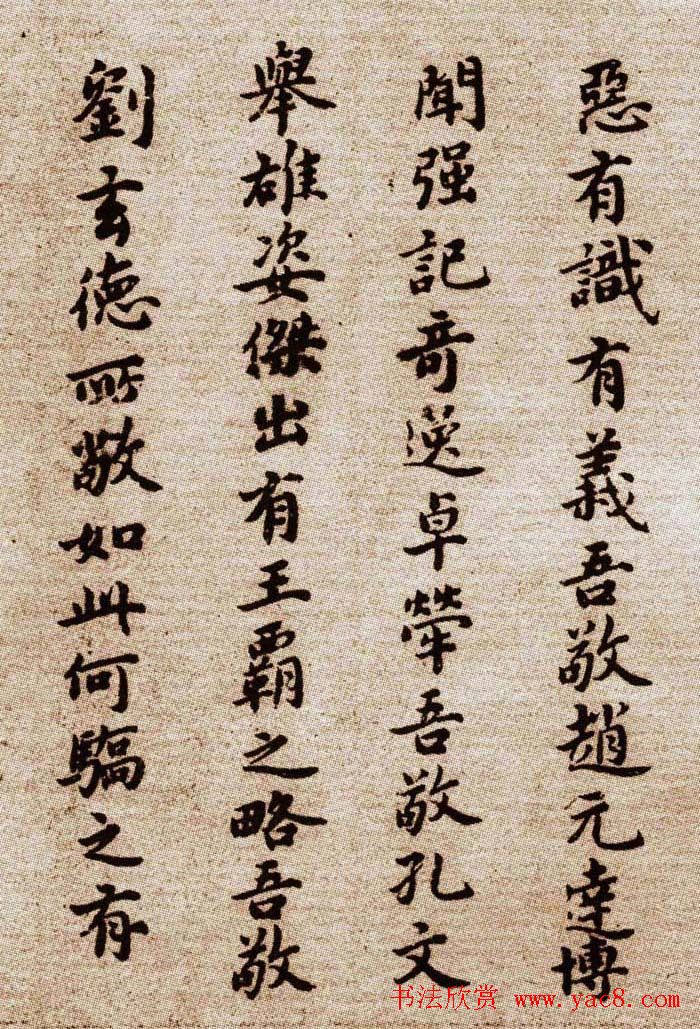 惡有識有義吾敬趙元達博
聞强記奇逸卓犖吾敬孔文
舉雄姿傑出有王覇之略吾敬
劉玄徳所敬如此何驕之有
书法欣赏 www.yac8.com